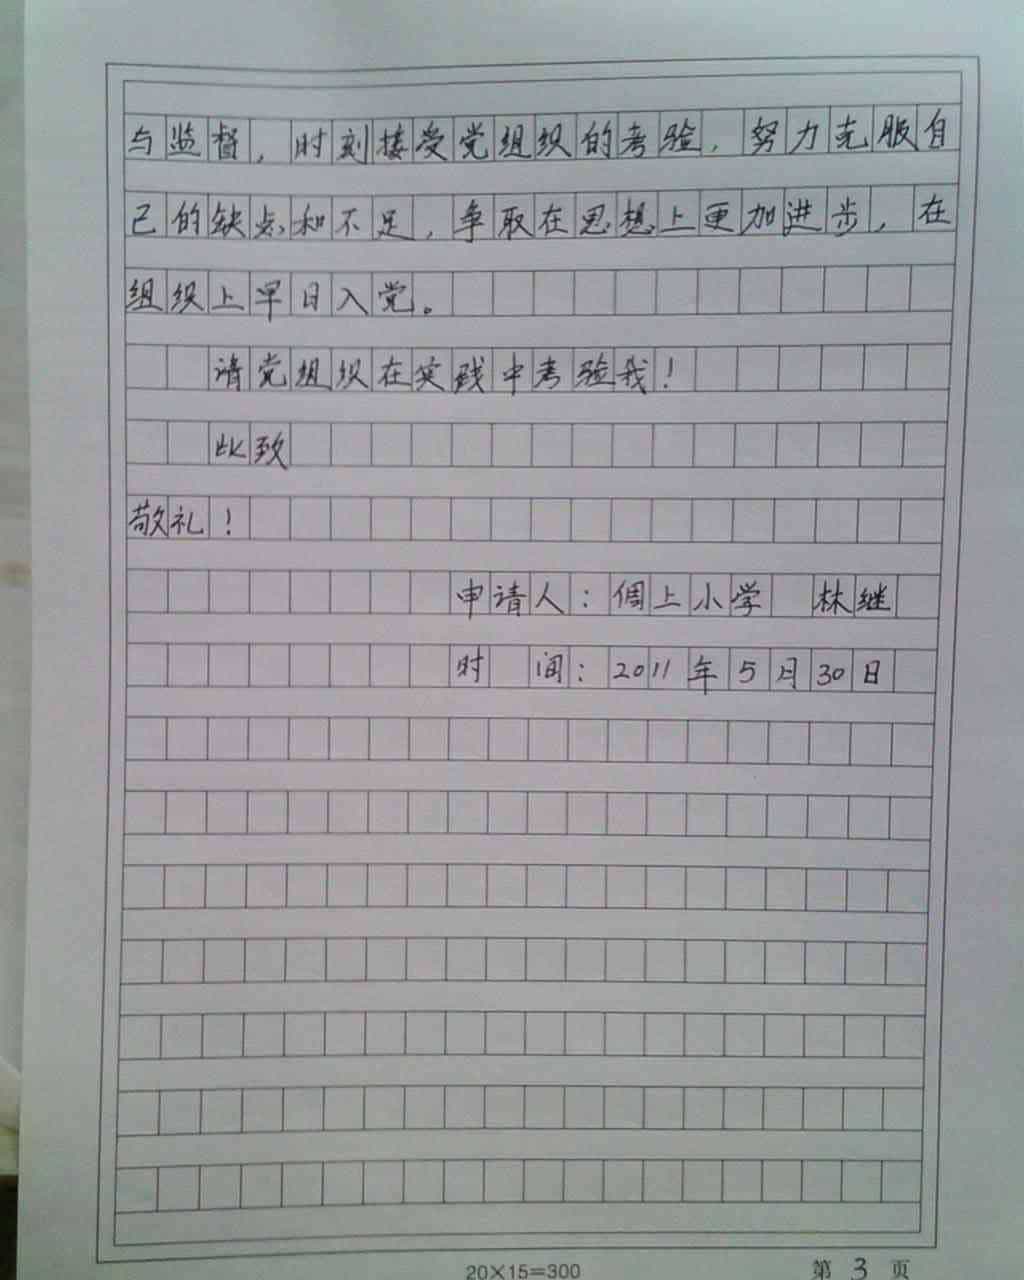 与监督,时刻接受党组织的考验,努力克服自
己的缺点和不足,争取在思想上更加进步,在
组织上早日入党。
请党组织在实践中考验我!
此致
敬礼!
申请人:倜上小学 林继
时 间:2011年5月30日
20×15=300
第 3 页